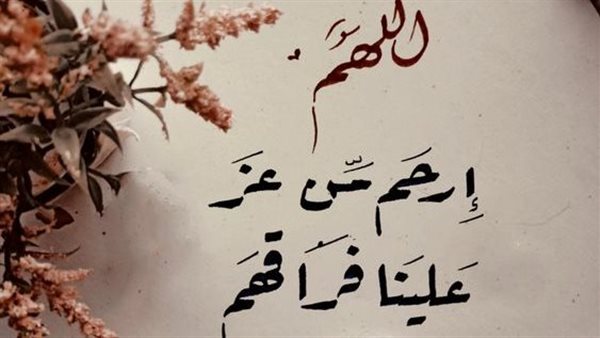 اللهُمَّ
إِرحَم مَّن عَزَ
عَلَينَا فرَاقهَم